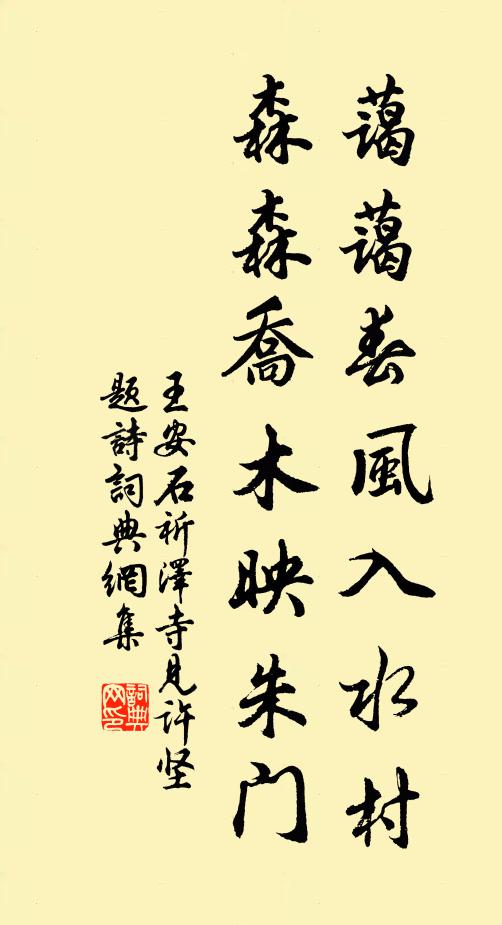 藹藹春風入水村
森森喬木映朱門
王安石祈澤寺見許坚
题詩詞典網集
詞典
网印